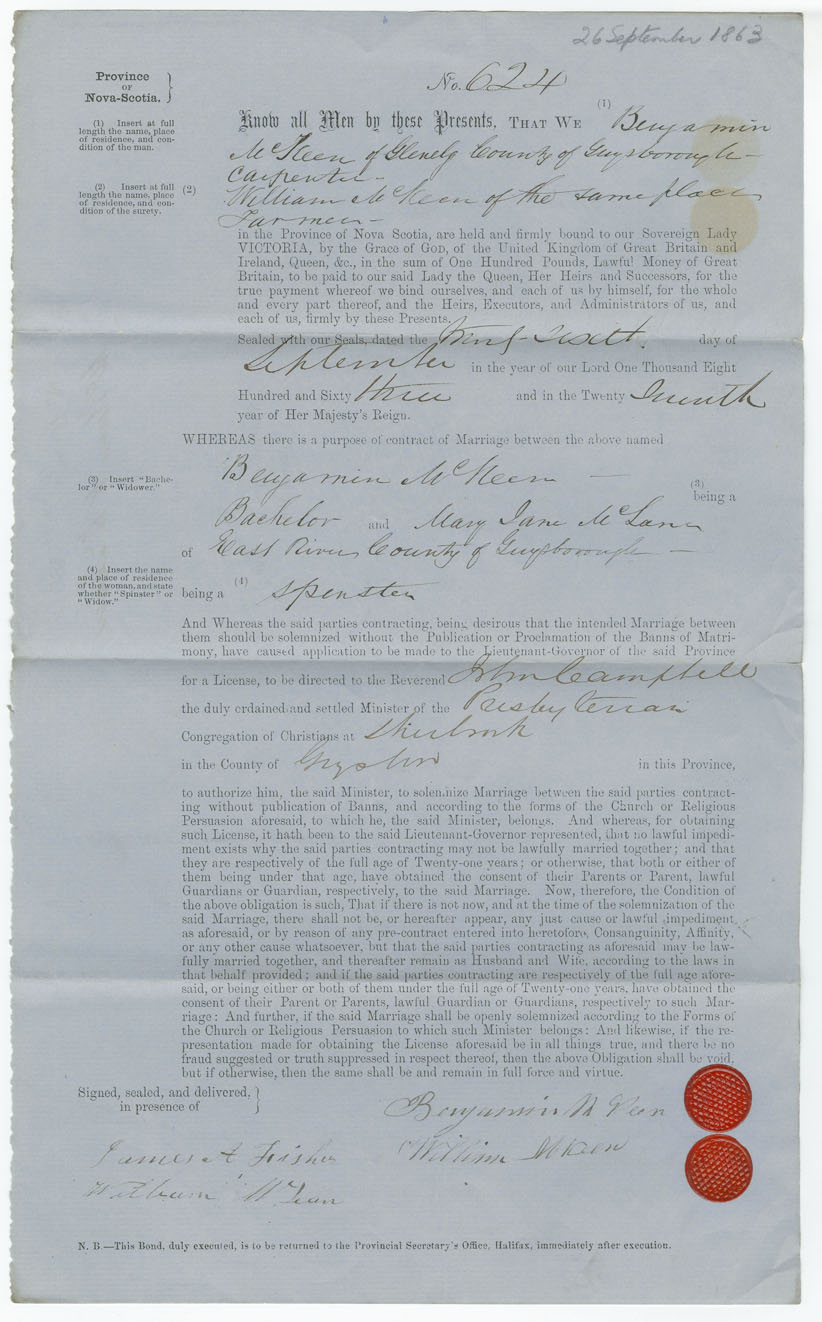 26 September 1863
Province
OF
Nova-Scotia.
No. 624
(1) Insert at full
length the name, place
of residence, and con-
dition of the man.
Know all Men by these Presents, THAT WE (1) Benjamin
McKeen of Glenelg County of Guysborough —
Carpenter —
(2) Insert at full
length the name, place
of residence, and con-
dition of the surety.
(2) William McKeen of the same place
Farmer —
in the Province of Nova Scotia, are held and firmly bound to our Sovereign Lady
VICTORIA, by the Grace of GOD, of the United Kingdom of Great Britain and
Ireland, Queen, &c., in the sum of One Hundred Pounds, Lawful Money of Great
Britain, to be paid to our said Lady the Queen, Her Heirs and Successors, for the
true payment whereof we bind ourselves, and each of us by himself, for the whole
and every part thereof, and the Heirs, Executors, and Administrators of us, and
each of us, firmly by these Presents.
Sealed with our Seals, dated the day of
September in the year of our Lord One Thousand Eight
Hundred and Sixty three and in the Twenty
year of Her Majesty's Reign.
WHEREAS there is a purpose of contract of Marriage between the above named
(3) Insert "Bache-
lor" or "Widower."
Benjamin McKeen — (3)
being a
Bachelor and Mary Jane McLane
of East River County of Guysborough —
(4) Insert the name
and place of residence
of the woman, and state
whether "Spinster" or
"Widow."
being a (4) Spinster
And Whereas the said parties contracting, being desirous that the intended Marriage between
them should be solemnized without the Publication or Proclamation of the Banns of Matri-
mony, have caused application to be made to the Lieutenant-Governor of the said Province
for a License, to be directed to the Reverend John Campbell
the duly ordained and settled Minister of the Presbyterian
Congregation of Christians at Sherbrook
in the County of Guysboro in this Province,
to authorize him, the said Minister, to solemnize Marriage between the said parties contract-
ing without publication of Banns, and according to the forms of the Church or Religious
Persuasion aforesaid, to which he, the said Minister, belongs. And whereas, for obtaining
such License, it hath been to the said Lieutenant-Governor represented, that no lawful impedi-
ment exists why the said parties contracting may not be lawfully married together; and that
they are respectively of the full age of Twenty-one years; or otherwise, that both or either of
them being under that age, have obtained the consent of their Parents or Parent, lawful
Guardians or Guardian, respectively, to the said Marriage. Now, therefore, the Condition of
the above obligation is such, That if there is not now, and at the time of the solemnization of the
said Marriage, there shall not be, or hereafter appear, any just cause or lawful impediment
as aforesaid, or by reason of any pre-contract entered into heretofore, Consanguinity, Affinity,
or any other cause whatsoever, but that the said parties contracting as aforesaid may be law-
fully married together, and thereafter remain as Husband and Wife, according to the laws in
that behalf provided; and if the said parties contracting are respectively of the full age afore-
said, or being either or both of them under the full age of Twenty-one years, have obtained the
consent of their Parent or Parents, lawful Guardian or Guardians, respectively to such Mar-
riage: And further, if the said Marriage shall be openly solemnized according to the Forms of
the Church or Religious Persuasion to which such Minister belongs: And likewise, if the re-
presentation made for obtaining the License aforesaid be in all things true, and there be no
fraud suggested or truth suppressed in respect thereof, then the above Obligation shall be void,
but if otherwise, then the same shall be and remain in full force and virtue.
Signed, sealed, and delivered,
in presence of
Benjamin McKeen
James A Fisher
William McKeen
William
N. B.—This Bond, duly executed, is to be returned to the Provincial Secretary's Office, Halifax, immediately after execution.